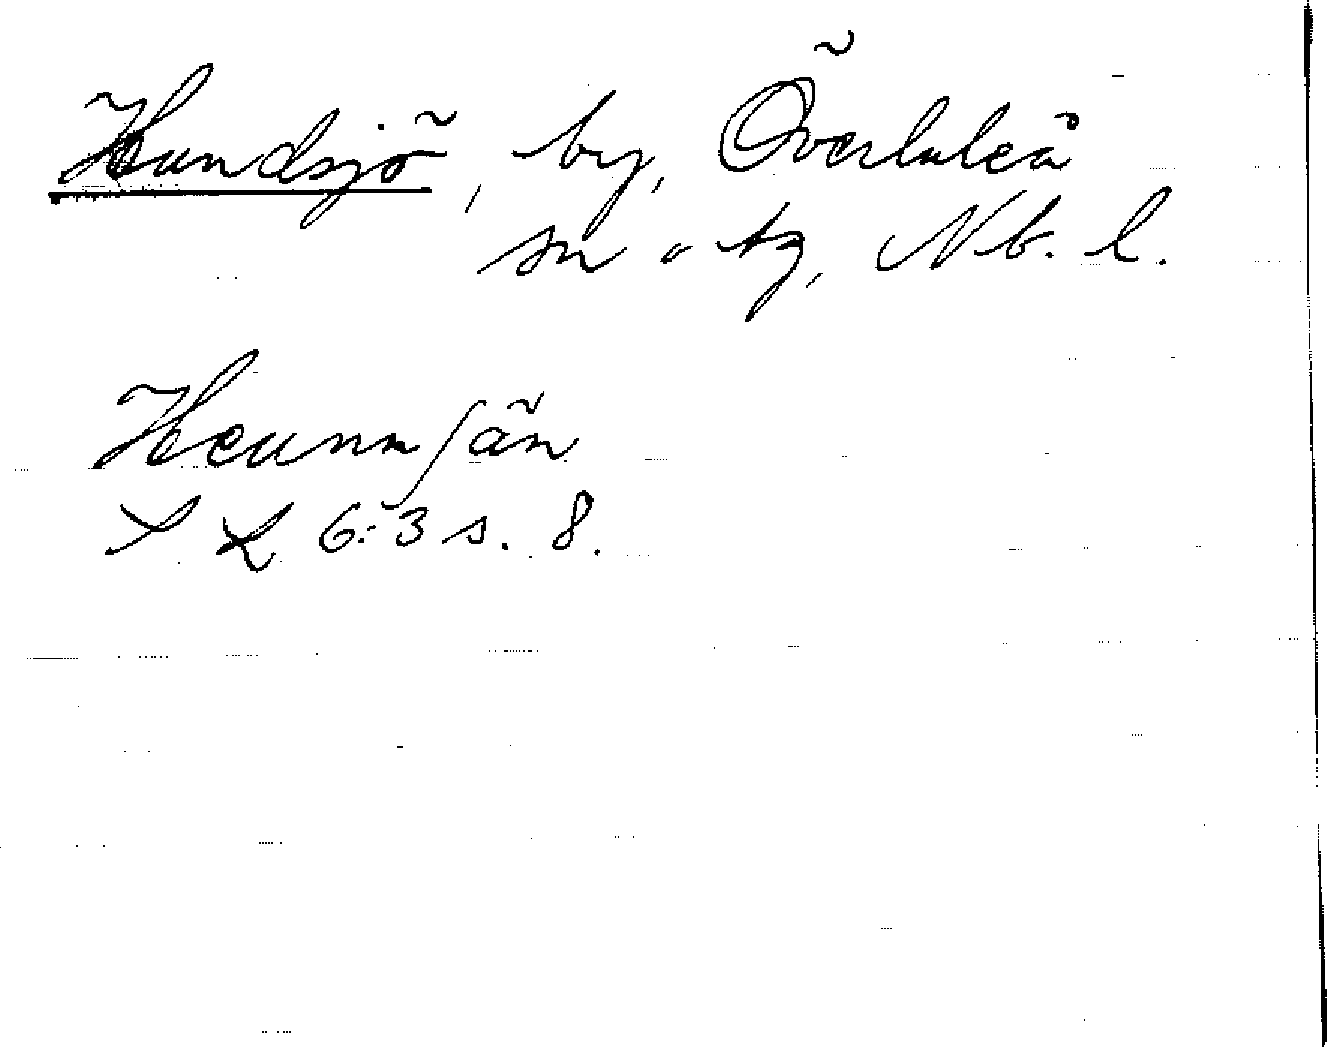 Hundsjö, by, Överluleå
sn o tg, Nb. l.
Heunnſän
S L 6:3 s. 8.